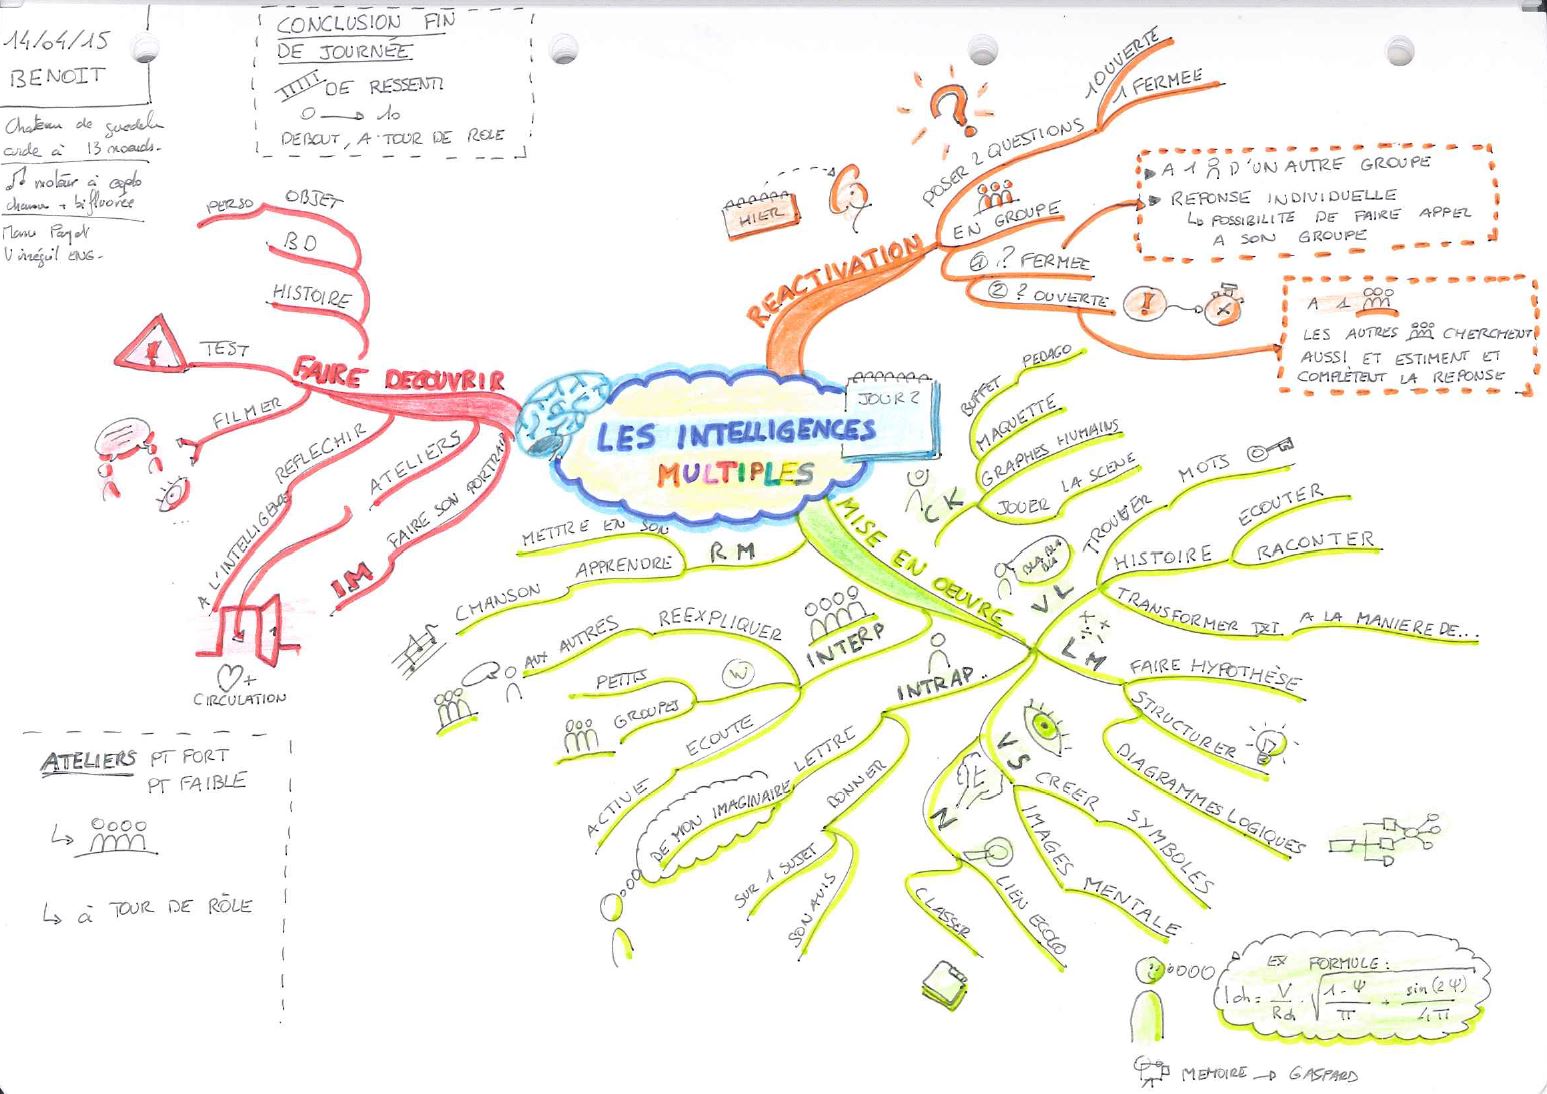 14/04/15
BENOIT
Chateau de
corde à 13 noeuds.
moteur à explo
CONCLUSION FIN
DE JOURNÉE
DE RESSENTI
0 → 10
DEBOUT, A TOUR DE ROLE
LES INTELLIGENCES
MULTIPLES
JOUR 2
REACTIVATION
HIER
?
POSER 2 QUESTIONS
1 OUVERTE
1 FERMEE
EN GROUPE
① ? FERMEE
② ? OUVERTE
!
A 1 D'UN AUTRE GROUPE
REPONSE INDIVIDUELLE
↳ POSSIBILITE DE FAIRE APPEL
A SON GROUPE
A 1
LES AUTRES CHERCHENT
AUSSI ET ESTIMENT ET
COMPLÈTENT LA REPONSE
FAIRE DECOUVRIR
OBJET
PERSO
BD
HISTOIRE
TEST
FILMER
REFLECHIR
A L'INTELLIGENCE
ATELIERS
FAIRE SON PORTRAIT
IM
+
CIRCULATION
ATELIERS PT FORT
PT FAIBLE
↳
↳ à TOUR DE RÔLE
MISE EN OEUVRE
CK
BUFFET PEDAGO
MAQUETTE
GRAPHES HUMAINS
JOUER LA SCENE
VL
BLA BLA
BLA
TROUVER MOTS
HISTOIRE
ECOUTER
RACONTER
TRANSFORMER TXT A LA MANIERE DE...
LM
FAIRE HYPOTHÈSE
STRUCTURER
DIAGRAMMES LOGIQUES
VS
CREER SYMBOLES
IMAGES MENTALE
N
LIEN ECOLO
CLASSER
INTRAP..
LETTRE
DE MON IMAGINAIRE
DONNER
SUR 1 SUJET
SON AVIS
INTERP
REEXPLIQUER
AUX AUTRES
W
PETITS
GROUPES
ECOUTE
ACTIVE
RM
METTRE EN SON
APPRENDRE
CHANSON
EX FORMULE :
Ich = V/Rch · √(1-Ψ/π + sin(2Ψ)/4π)
MEMOIRE → GASPARD